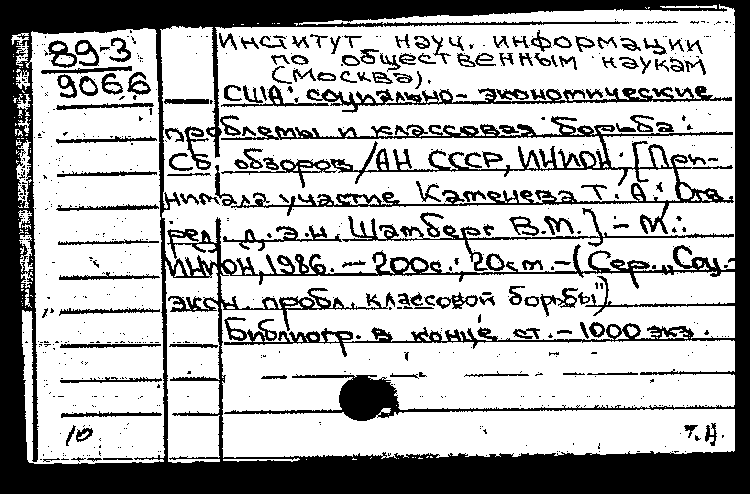 89-3
9066
Институт науч. информации
по общественным наукам
(Москва).
США: социально-экономические
проблемы и классовая борьба:
Сб. обзоров /АН СССР, ИНИОН; [При-
нимала участие Каменева Т. А.; Отв.
ред. д. э. н. Шамберг В.М.]. - М.:
ИНИОН, 1986. - 200с.; 20см. - (Сер. „Соц.-
экон. пробл. классовой борьбы")
Библиогр. в конце ст. - 1000 экз.
10 т.н.